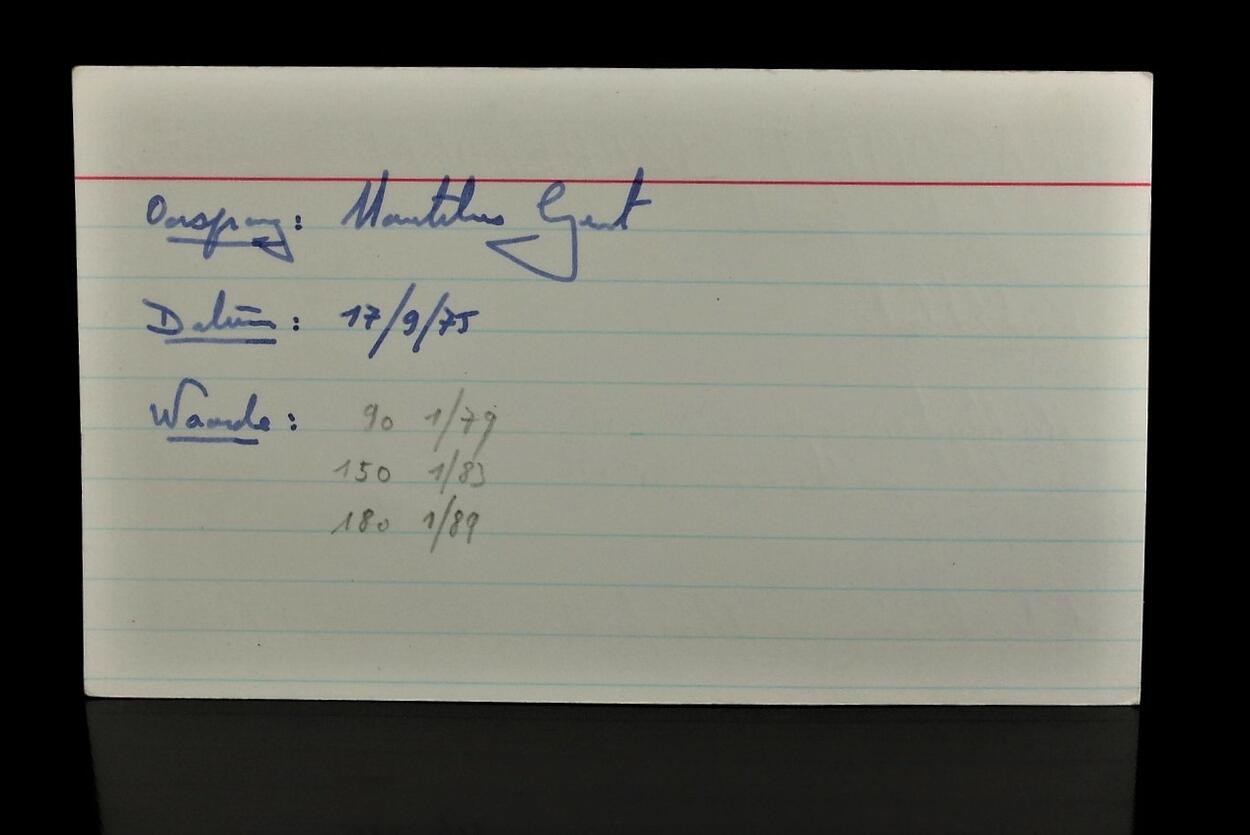 Oorsprong: Nautilus Gent
Datum: 17/9/75
Waarde: 90 1/79
150 1/83
180 1/89